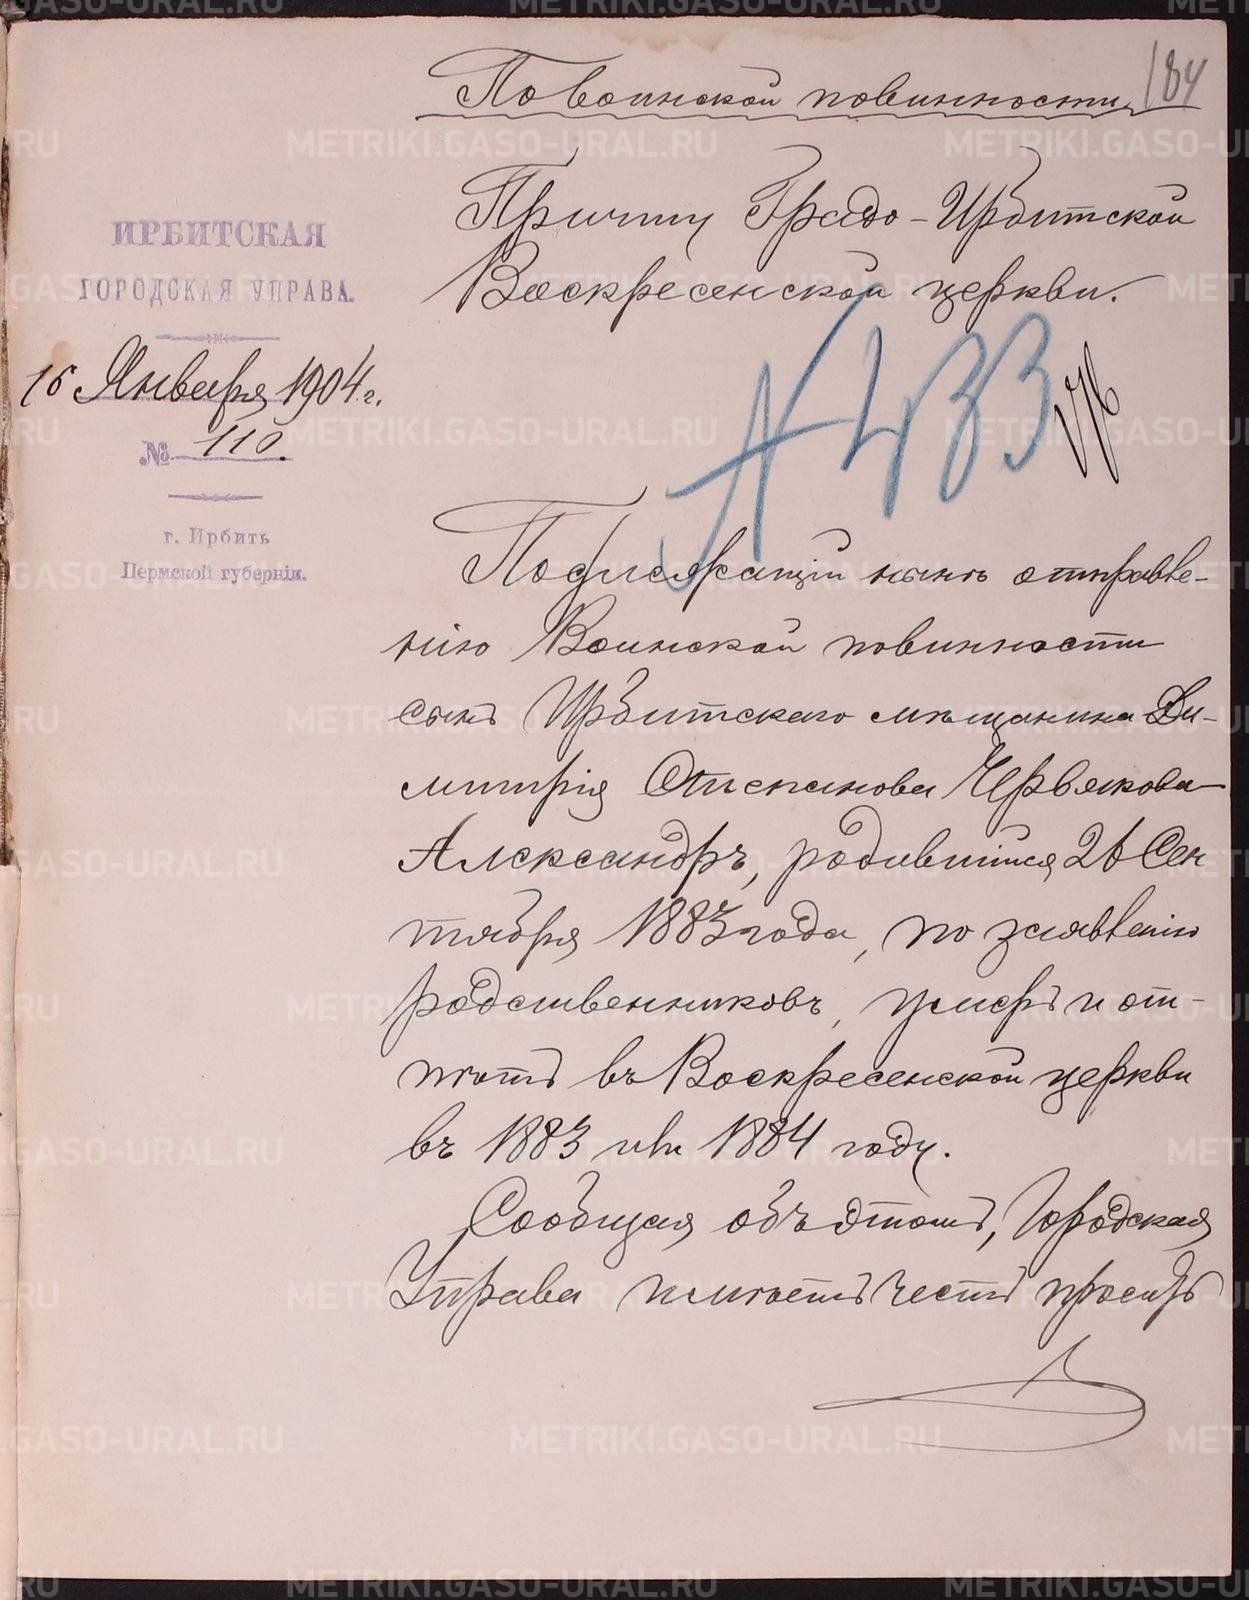 184
По воинской повинности.
Причту Градо-Ирбитской
Воскресенской церкви.
ИРБИТСКАЯ
ГОРОДСКАЯ УПРАВА.
16 Января 1904 г.
№ 110.
г. Ирбить
Пермской губерніи.
Подлежащій нынѣ отправле-
нію Воинской повинности
сынъ Ирбитскаго мѣщанина Ди-
митрія Степанова Червякова
Александръ, родившійся 26 Сен
тября 1883 года, по заявленію
родственниковъ, умеръ и от-
пѣтъ въ Воскресенской церкви
въ 1883 или 1884 году.
Сообщая объ этомъ, Городская
Управа имѣетъ честь просить
METRIKI.GASO-URAL.RU